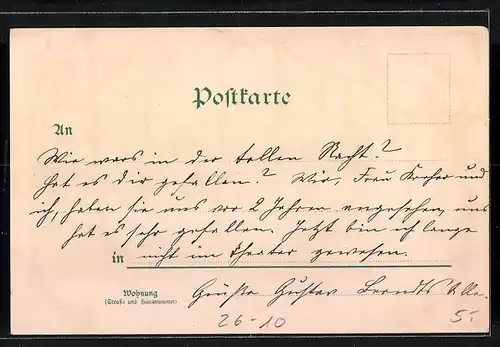 Postkarte
An
Wie wars in der tollen Nacht?
Hat es dir gefallen? Wir, Frau und
ich, haben sie uns vor 2 Jahren angesehen, uns
hat es sehr gefallen. Jetzt bin ich lange
in nicht im Theater gewesen.
Wohnung
(Straße und Hausnummer)
Gustav Berndts
26-10
5.-